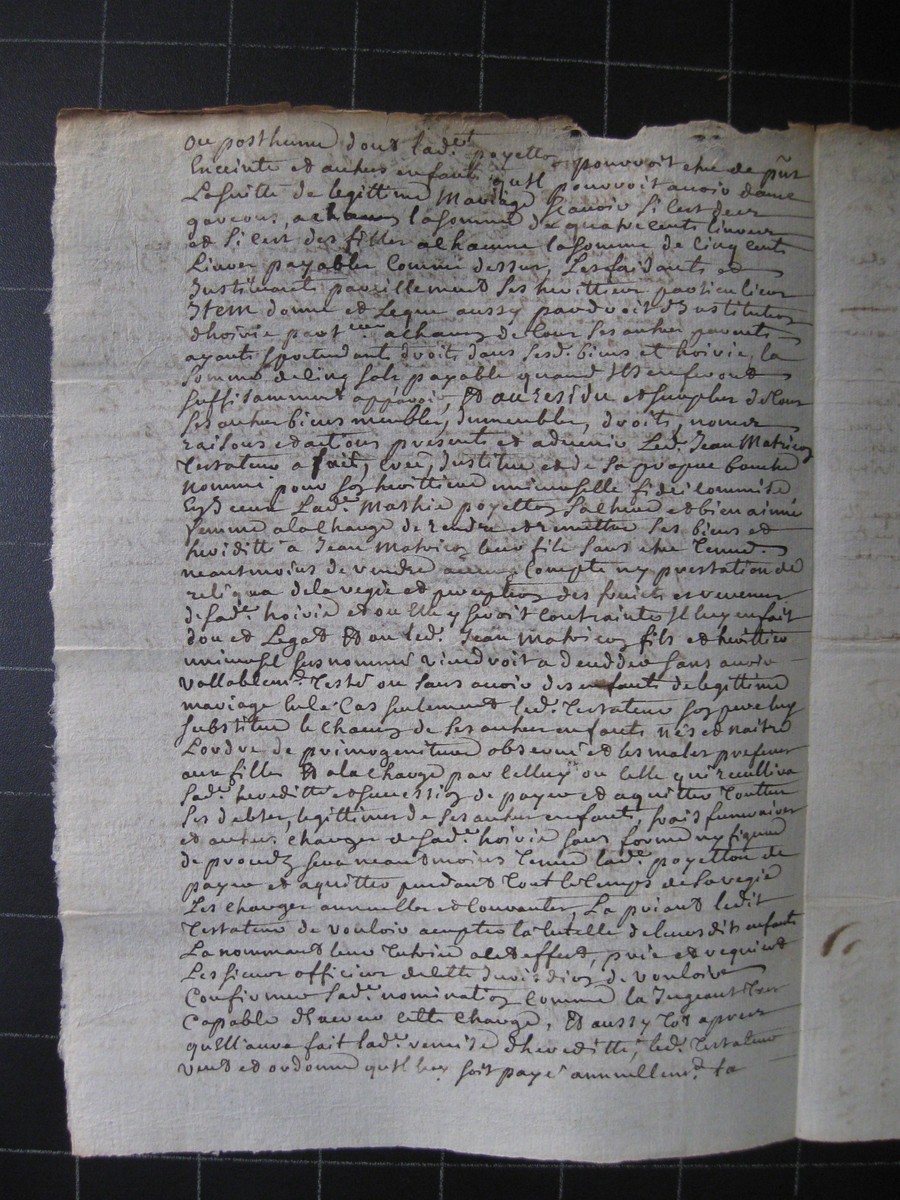 ou posthume dont lad.e poyetton pourroit etre de pñt
Enceinte et autres enfants qu'Il pourroit avoir dame
La suitte de legittime Mariage Scavoir si c'est des
garcons, a chacun la somme de quatre cents livres
et si c'est des filles a chacune la somme de cinq cents
Livres payables comme dessus, Les faisants et
Instituants pareillement ses heritiers particuliers
Item donne et legue aussy par droit d'Institution
d'hoirie part.ere a chacun de tous ses autres parents
ayants et pretendants droits dans sesd. biens et hoirie, la
somme de cinq sols payable quand Ils en feront
suffisamment apparoir, Et au residu et surplus de tous
ses autres biens meubles, Immeubles, droits, noms
raisons et actions presents et advenir Led. Jean Matricon
Testateur a fait, creé, Institue et de sa propre bouche
Nommé pour son herittiere universelle fidei commise
Lad.e Mathie poyetton sa chere et bien aimée
femme a la charge de rendre et remettre ses biens et
heredité a Jean Matricon leur fils sans etre tenue
neantmoins de rendre aucun Compte ny prestation de
reliqua de la regie et perception des fruicts et revenus
de sad.e hoirie et ou Elle y seroit contrainte Il luy en fait
don et Legat Et ou led. Jean Matricon fils et herittier
universel sus nommé viendroit a decedder sans avoir
vallablem.t Testé ou sans avoir des enfants de legittime
mariage en ce Cas seulement led. Testateur son pere luy
substitue le chacun de ses autres enfants nés et naitre
L'ordre de primogeniture observé et les males preferés
aux filles Et a la charge par celluy ou celle qui recullira
sad.e heredité et succession de payer et aquitter toutes
ses debtes, legittimes de ses autres enfants, frais funeraires
et autres charges de sad.e hoirie sans forme ny figure
de procedz sera neantmoins tenue lad.e poyetton de
payer et aquitter pendant tout le temps de sa regie
Les charges annuelles et courantes, La priant ledit
Testateur de vouloir accepter la tutelle de leursdits enfants
La nommant leur tutrice a cet effect, prie et requiert
Les sieurs officiers de cette Jurisdion de vouloir
Confirmer sad.e nomination comme la Jugeant tres
Capable d'exercer cette charge, Et aussy tot apres
qu'Ell'aura fait lad.e remise d'heredité, led. Testateur
veut et ordonne qu'Il luy soit payé annuellem.t sa